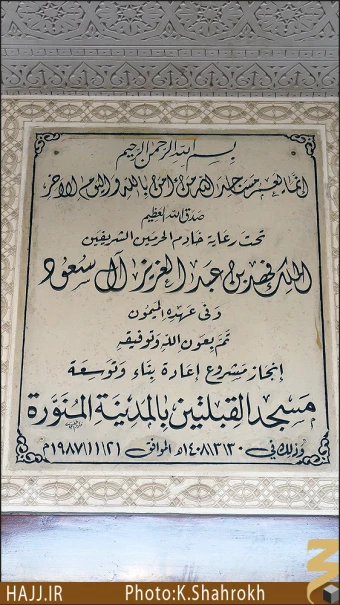 بسم الله الرحمن الرحيم
إنما يعمر مساجد الله من آمن بالله واليوم الآخر
صدق الله العظيم
تحت رعاية خادم الحرمين الشريفين
الملك فهد بن عبد العزيز آل سعود
وفي عهده الميمون
تم بعون الله وتوفيقه
إنجاز مشروع إعادة بناء وتوسعة
مسجد القبلتين بالمدينة المنورة
وذلك في ١٤٠٨/٣/٣٠هـ الموافق ١٩٨٧/١١/٢١م
HAJJ.IR Photo:K.Shahrokh